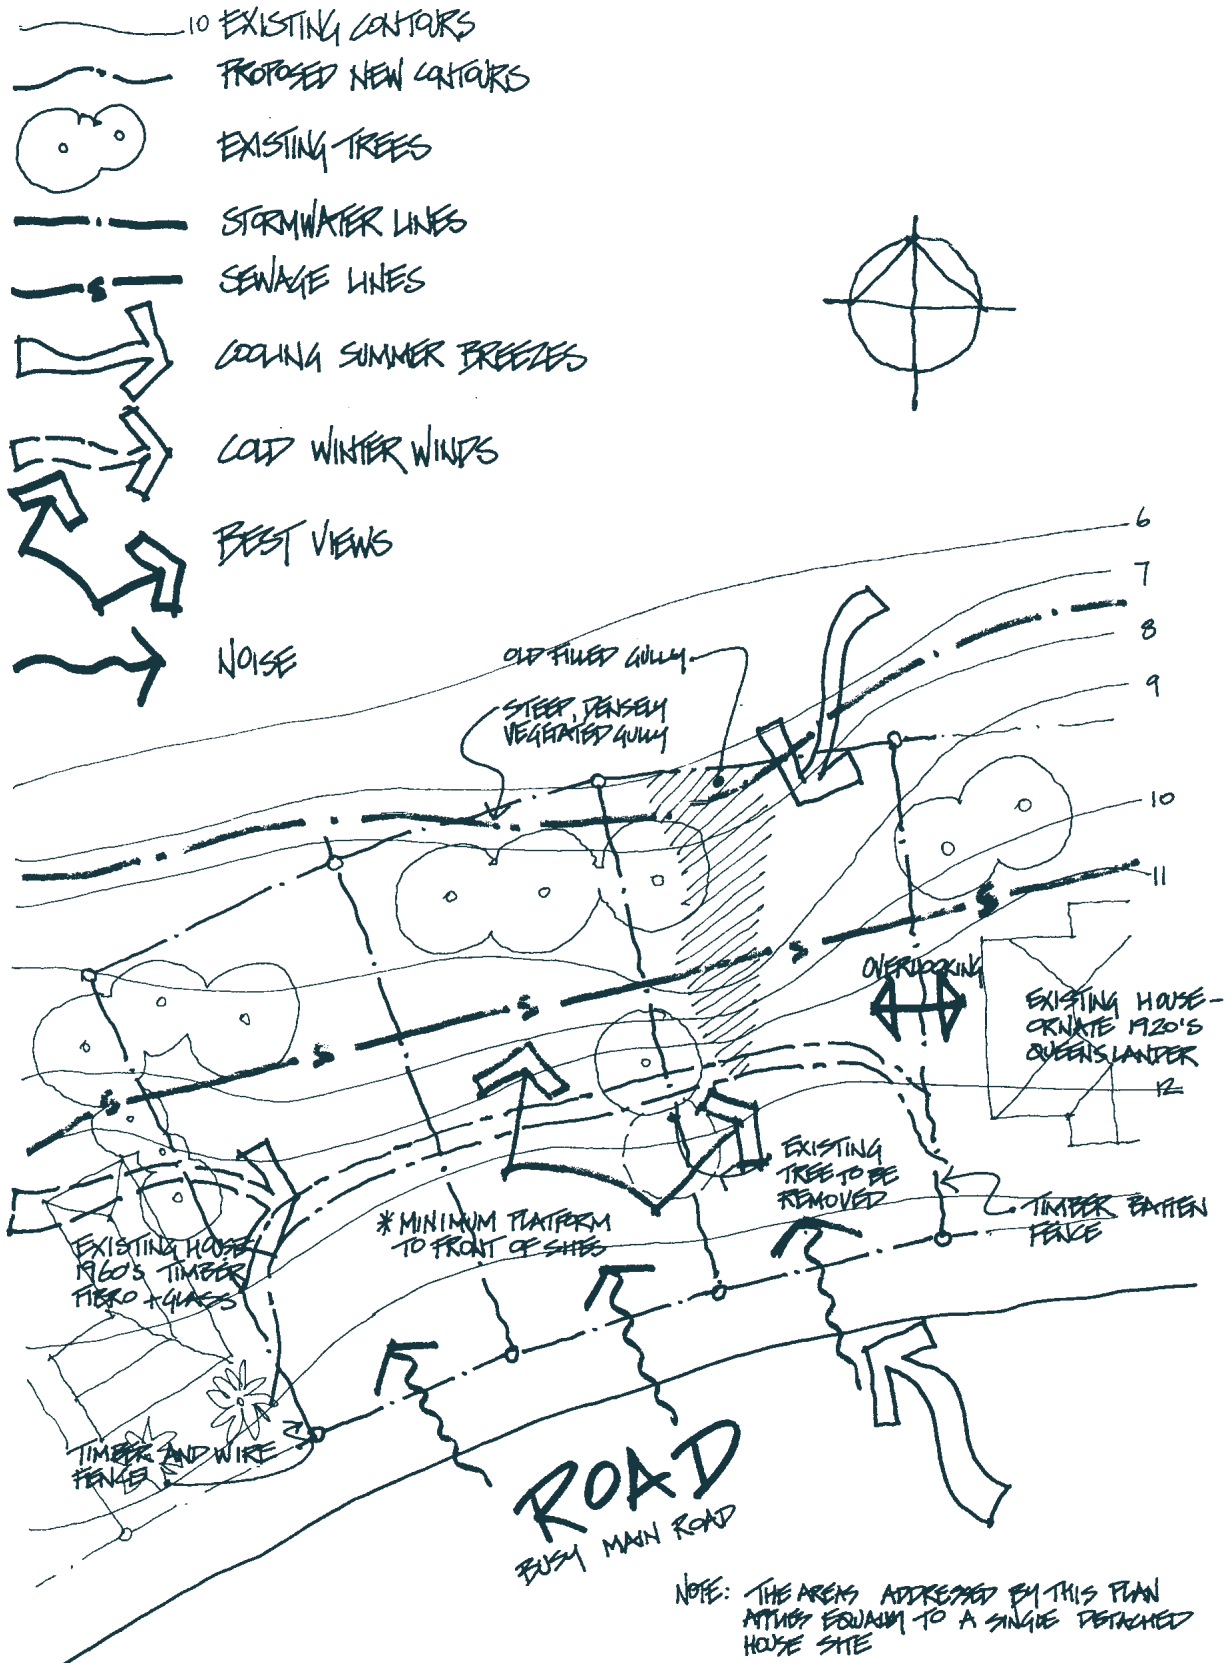 10 EXISTING CONTOURS
PROPOSED NEW CONTOURS
EXISTING TREES
STORMWATER LINES
S
SEWAGE LINES
COOLING SUMMER BREEZES
COLD WINTER WINDS
BEST VIEWS
NOISE
6
7
8
9
10
11
12
OLD FILLED GULLY
STEEP, DENSELY
VEGETATED GULLY
S
S
S
S
S
OVERLOOKING
EXISTING HOUSE-
ORNATE 1920'S
QUEENSLANDER
EXISTING
TREE TO BE
REMOVED
TIMBER BATTEN
FENCE
* MINIMUM PLATFORM
TO FRONT OF SITES
EXISTING HOUSE
1960'S TIMBER
FIBRO + GLASS
TIMBER AND WIRE
FENCE
ROAD
BUSY MAIN ROAD
NOTE: THE AREAS ADDRESSED BY THIS PLAN
APPLIES EQUALLY TO A SINGLE DETACHED
HOUSE SITE